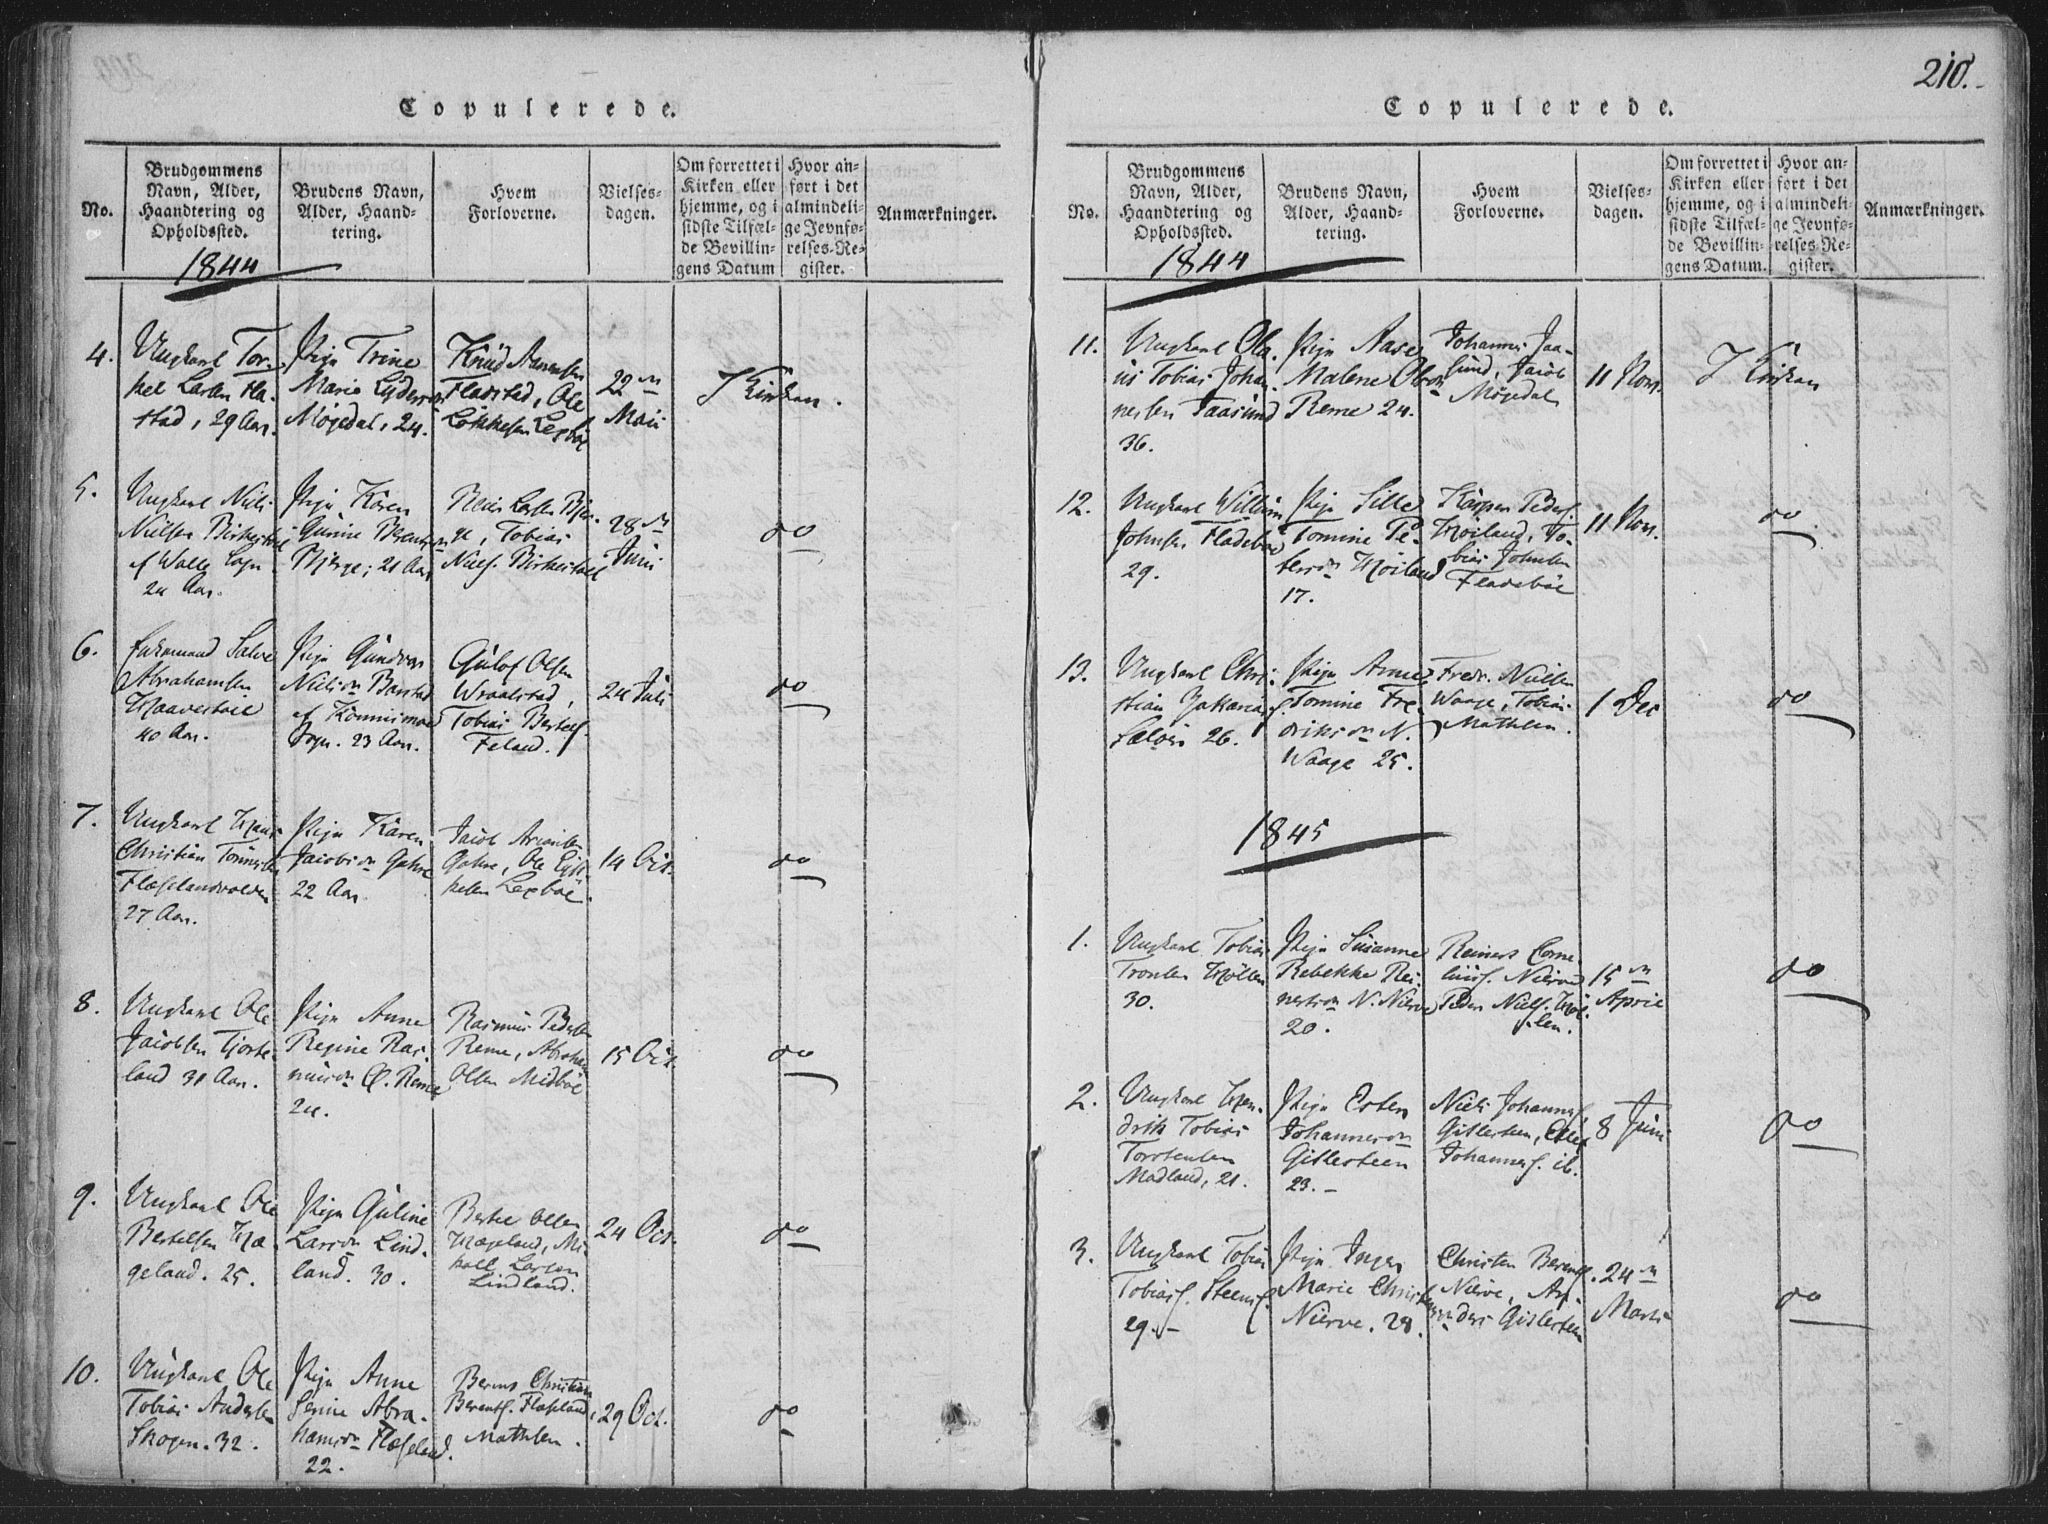 Copulerede.
No.
Brudgommens
Navn, Alder,
Haandtering og
Opholdssted.
Brudens Navn,
Alder, Haand-
tering.
Hvem
Forloverne.
Vielses-
dagen.
Om forrettet i
Kirken eller
hjemme, og i
sidste Tilfæl-
de Bevillin-
gens Datum
Hvor an-
ført i det
almindeli-
ge Jevnfø-
relses-Re-
gister.
Anmærkninger.
1844
4.
Ungkarl Tor-
kel Larsen Fla-
stad, 29 Aar.
Pige Trine
Marie
Møgedal, 24.
Knud
Fladstad, Ole
22
Mai
I Kirken.
5.
Ungkarl Niels
Nielsen Birkestøl
af Walle Sogn
24 Aar.
Pige Karen
Gurine
Bjerge, 21 Aar
Reier Larsen Bjer-
ge, Tobias
Niels. Birkestøl
28
Juni
do
6.
Enkemand Salve
Abrahamsen
40 Aar.
Pige Gundvor
Niels
Sogn. 23 Aar.
Gulof Olsen
Wraalstad,
Tobias Bertels.
Feland.
24 Juli
do
7.
Ungkarl Hans
Christian Tønnesen
27 Aar.
Pige Karen
Jacobs Gahre
22 Aar
Jacob
Gahre, Ole
14 Oct.
do
8.
Ungkarl Ole
Jacobsen Tjorte-
land 31 Aar.
Pige Anne
Regine Ras-
mus Ø. Reme
24.
Rasmus Peders
Reme, Abraham
Olsen Midbøe
15 Oct.
do
9.
Ungkarl Ole
Bertelsen Hæ-
geland. 25.
Pige Guline
Lars Lind-
land. 30.
Bertel Olsen
Hægeland, Mi-
kall Larsen
Lindland.
24 Oct.
do
10.
Ungkarl Ole
Tobias Andersen
Skogen. 32.
Pige Anne
Serine Abra-
hams Flæseland.
22.
Berent Christian
Berents. Flæseland,
Mathsen.
29 Oct.
do
210.
Copulerede.
No.
Brudgommens
Navn, Alder,
Haandtering og
Opholdssted.
Brudens Navn,
Alder, Haand-
tering.
Hvem
Forloverne.
Vielses-
dagen.
Om forrettet i
Kirken eller
hjemme, og i
sidste Tilfæl-
de Bevillin-
gens Datum.
Hvor an-
ført i det
almindeli-
ge Jevnfø-
relses Re-
gister.
Anmærkninger.
1844
11.
Ungkarl Ola-
us Tobias Johan-
nesen Faasund
36.
Pige Aase
Malene Ols
Reme 24.
Johannes Faa-
sund, Jacob
Møgedal
11 Nov.
I Kirken
12.
Ungkarl Willum
Johnsen Fladebøe
29.
Pige Sille
Tomine Pe-
ders Høiland
17.
Kasper Peders.
Høiland, To-
bias Johnsen
Fladebøe
11 Nov.
do
13.
Ungkarl Chri-
stian Zakarias.
26.
Pige Anne
Tomine Fre-
driks N.
Waage 25.
Fredr. Nielsen
Waage, Tobias
Mathsen.
1 Dec
do
1845
1.
Ungkarl Tobias
Tronsen Møllen
30.
Pige Susanne
Rebekke Rei-
ners N. Nierve
20.
Reiners Corne-
lius. Nierve
Peder Niels. Møl-
len.
15
April
do
2.
Ungkarl Hen-
drik Tobias
Torstensen
Madland, 21.
Pige Ester
Johannes
Gislesteen
23.-
Niels Johanns.
Gislesteen, Ellef
Johanns. ib.
8 Juni
do
3.
Ungkarl Tobias
Tobias. Steens.
29.-
Pige Inger
Marie
Nierve. 28.
Christen Berents.
Nierve,
Gislesteen
24
Marts
do